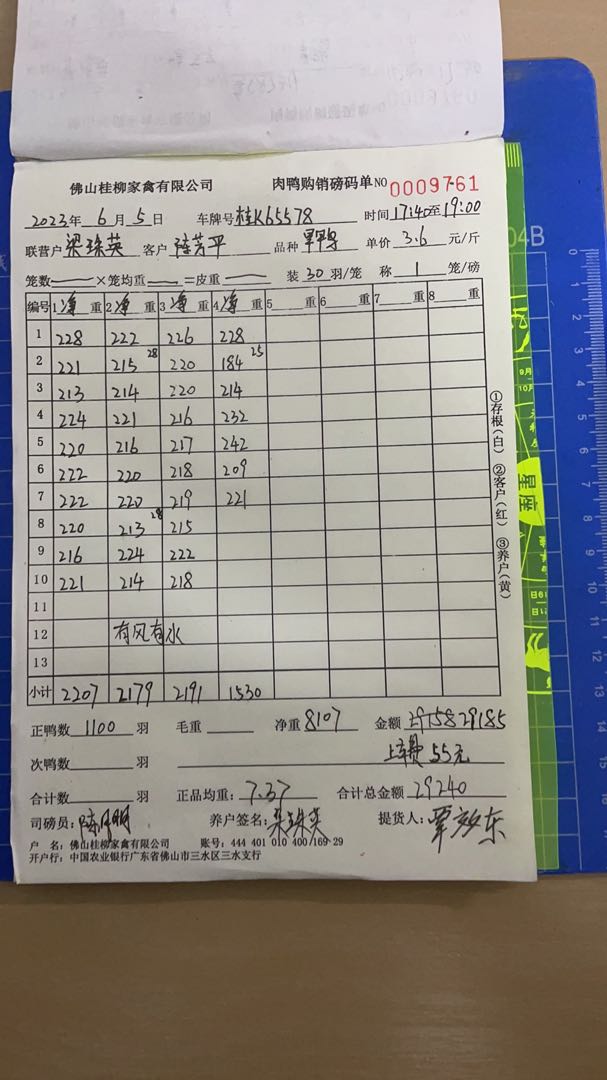 佛山桂柳家禽有限公司 肉鸭购销磅码单 NO 0009761
2023年 6月 5日 车牌号 桂K65578 时间 17:40至19:00
联营户 梁珠英 客户 陆芳平 品种 单价 3.6 元/斤
笼数 × 笼均重 = 皮重 装 30 羽/笼 称 1 笼/磅
编号 1 净 重 2 净 重 3 净 重 4 净 重 5 重 6 重 7 重 8 重
1 228 222 226 228
2 221 215 28 220 184 25
3 213 214 220 214
4 224 221 216 232
5 220 216 217 242
6 222 220 218 209
7 222 220 219 221
8 220 213 28 215
9 216 224 222
10 221 214 218
11
12 有风有水
13
小计 2207 2179 2191 1530
正鸭数 1100 羽 毛重 净重 8107 金额 29185
次鸭数 羽 上车费 55元
合计数 羽 正品均重: 7.37 合计总金额 29240
司磅员: 养户签名: 梁珠英 提货人:
户 名: 佛山桂柳家禽有限公司 账号: 444 401 010 400 169 29
开户行: 中国农业银行广东省佛山市三水区三水支行
①存根(白) ②客户(红) ③养户(黄)
04B
9月
10月
星座
0 1 2 3 4 5 6 7 8 9 10 11 12 13 14 15 16